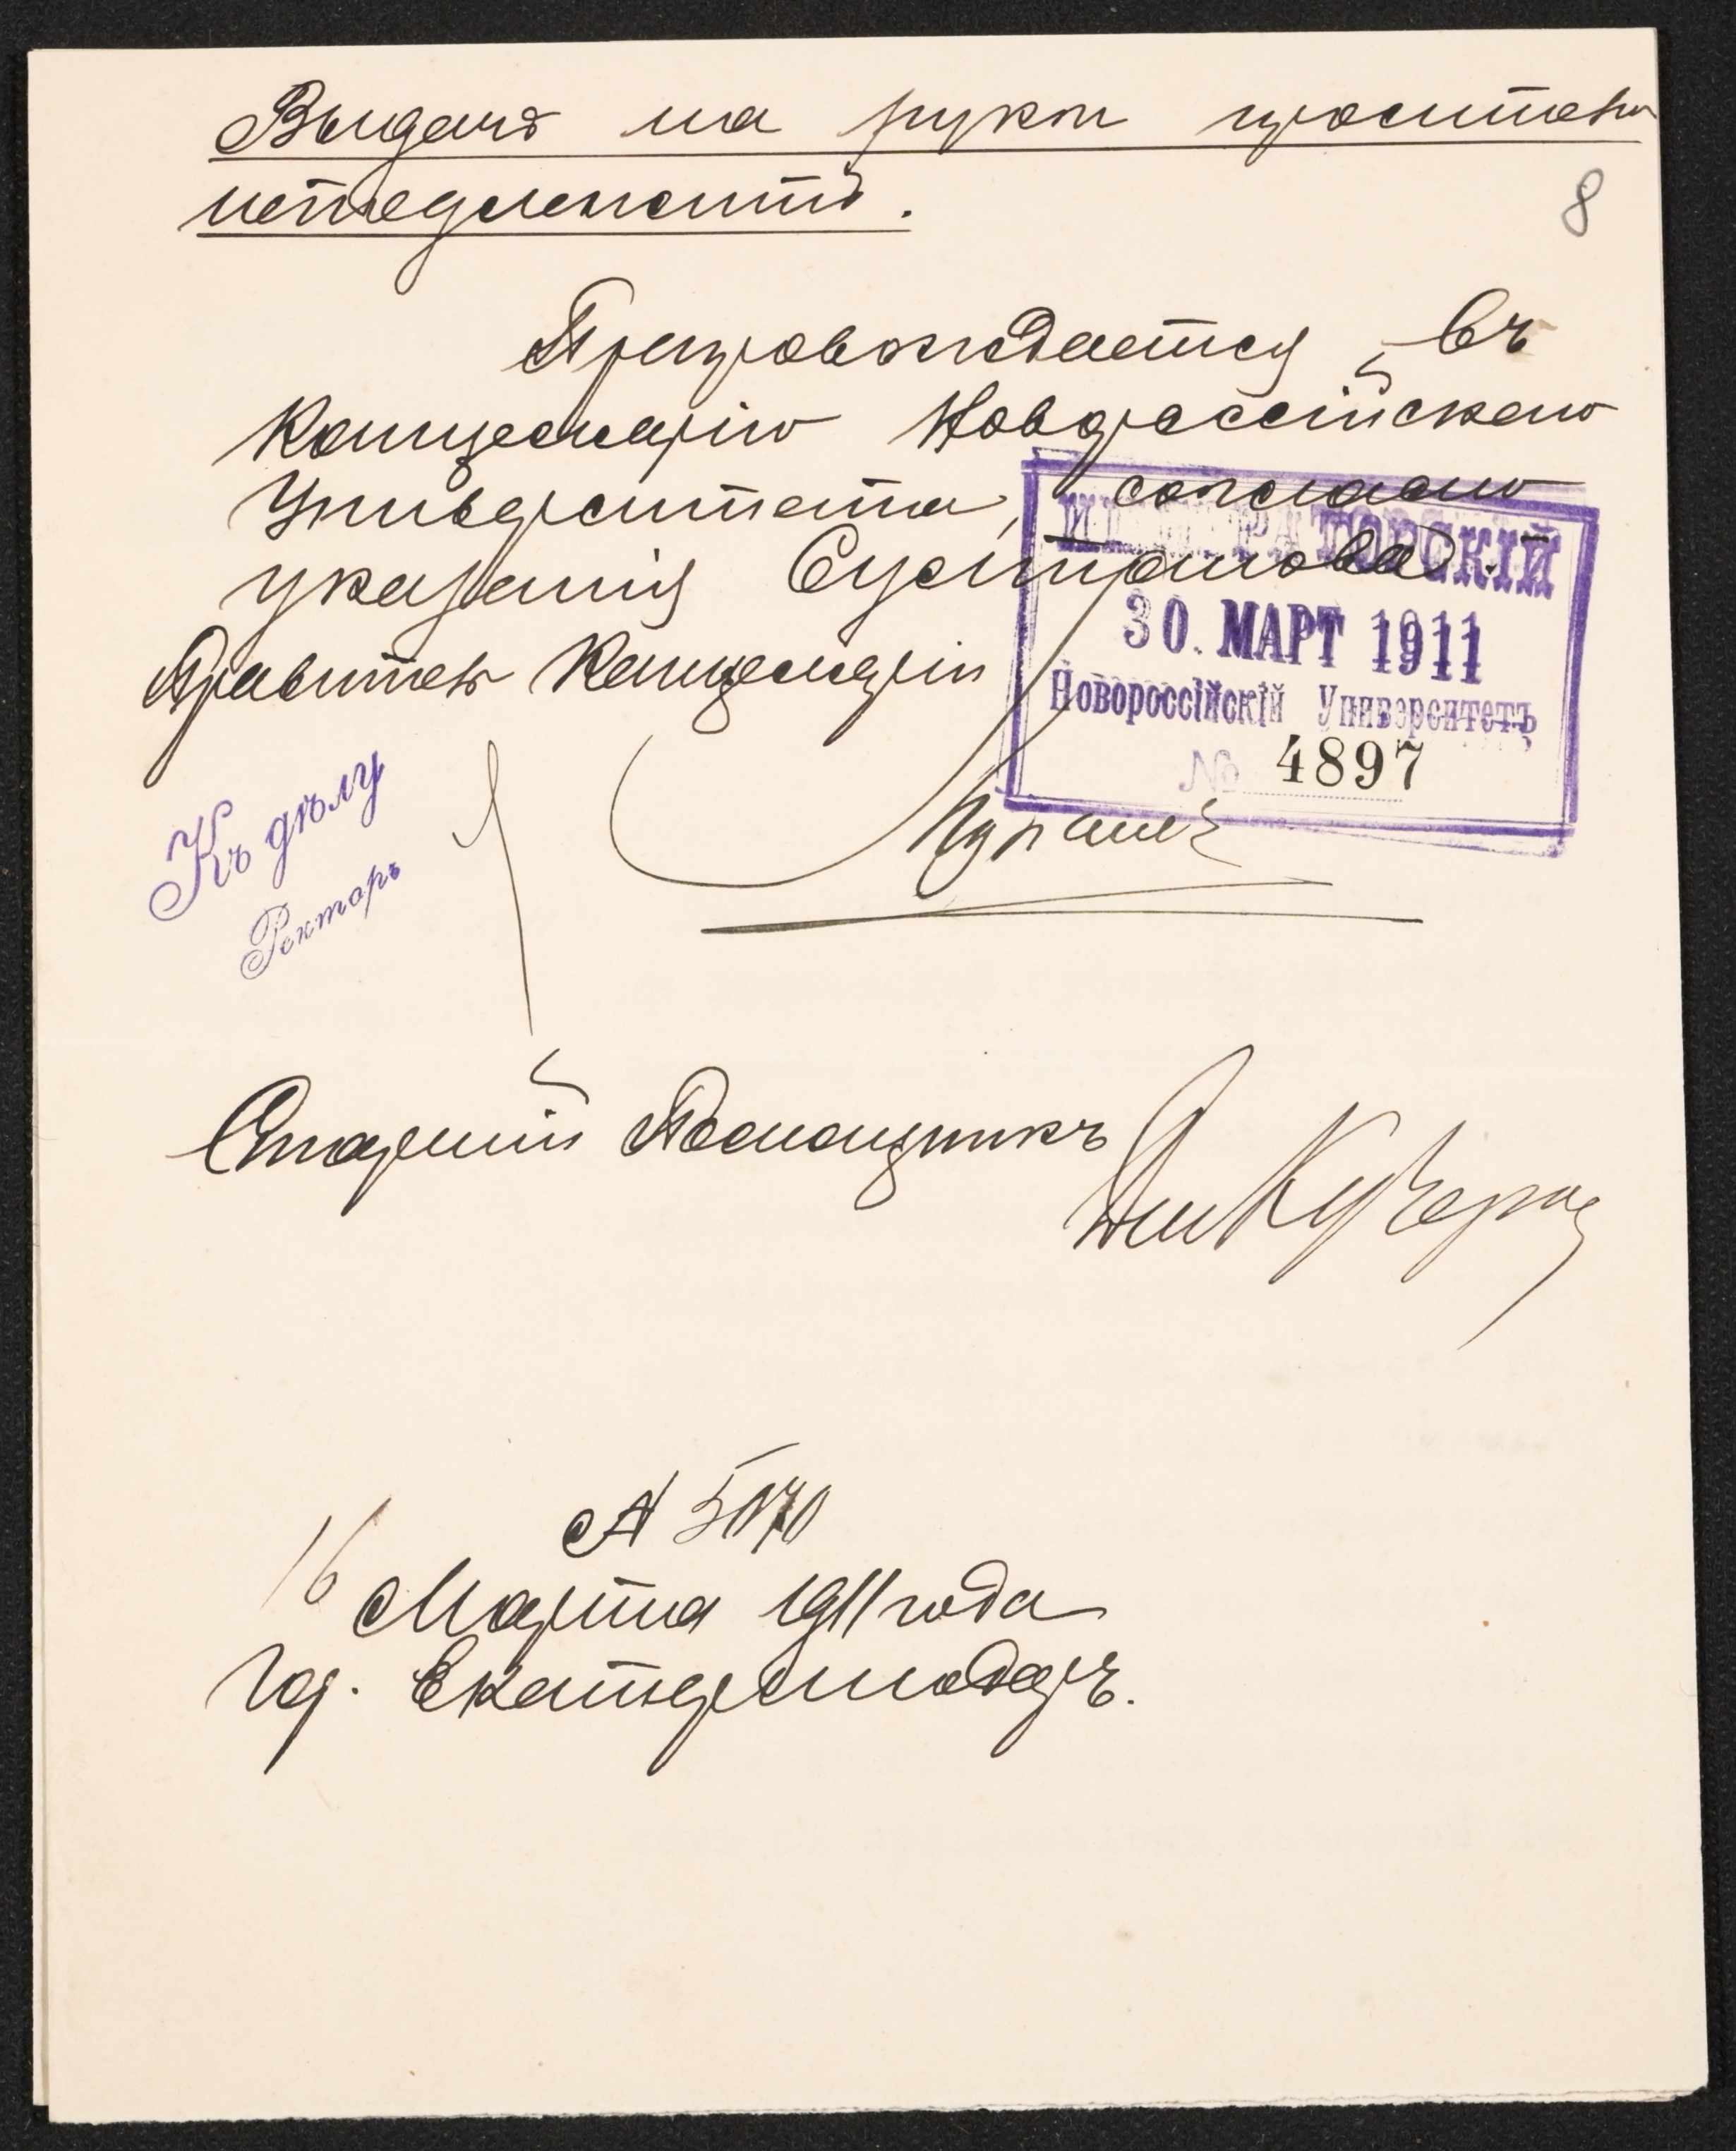 Выдача на руки просителю
не подлежитъ.
8
Препровождается въ
Канцелярію Новороссійскаго
Университета, согласно
указанія Сустратова.
ИМПЕРАТОРСКІЙ
30. МАРТ 1911
Новороссійскій Университетъ
№ 4897
Правитель Канцеляріи
Къ дѣлу
Ректоръ
Старшій Помощникъ
№ 5070
16 Марта 1911 года
Гор. Екатеринодаръ.